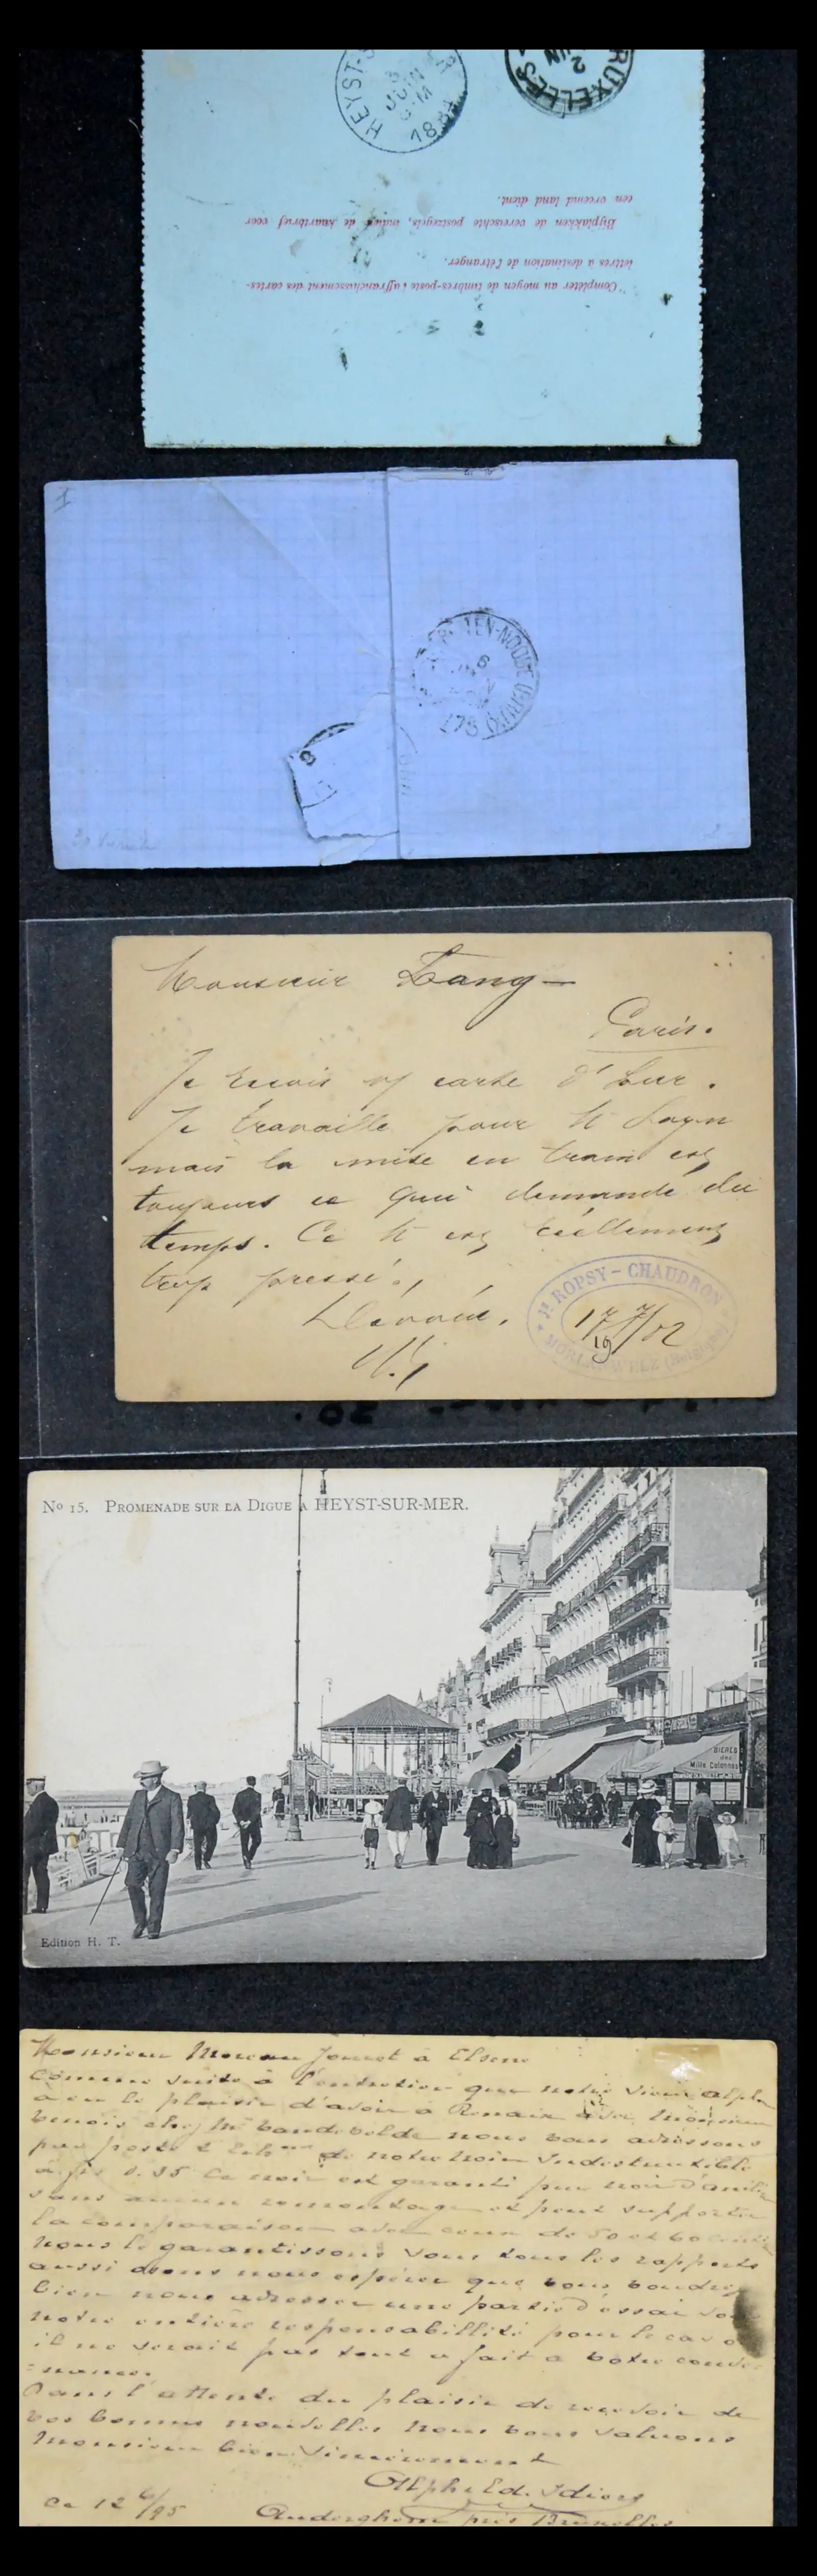 HEYST-S
3
JUIN
6-M
188
BRUXELLES 1
2
JUIN
Compléter au moyen de timbres-poste l'affranchissement des cartes-
lettres à destination de l'étranger.
Bijplakken de vereischte postzegels, indien de kaartbrief voor
een vreemd land dient.
1
TEN-NOODE (BRUX
6
8
Monsieur Lang
Paris.
Je reçois v/ carte d'hier.
Je travaille pour
mais la mise en train est
toujours ce qui demande du
temps. Ce est réellement
trop pressé.
JH ROPSY-CHAUDRON
17/7/82
19
MORLANWELZ (Belgique)
No 15. PROMENADE SUR LA DIGUE A HEYST-SUR-MER.
BIÈRES
des
Mille Colonnes
Edition H. T.
Monsieur Moreau Jouret à Elsene
Comme suite à l'entretien que notre sieur Alph
a eu le plaisir d'avoir à Renaix avec Monsieur
benoit chez Mr Vandevelde nous vous adressons
par poste 2 Ech de notre noir Indestructible
à frs 0.35 Ce noir est garanti pur noir d'aniline
sans aucun remontage et peut supporter
la comparaison avec ceux de 50 et 60 
nous le garantissons sous tous les rapports
aussi osons nous espérer que vous voudrez
bien nous adresser une partie d'essai
notre entière responsabilité pour le cas o
il ne serait pas tout a fait a votre conve-
=nance.
Dans l'attente du plaisir de recevoir de
vos bonnes nouvelles nous vous saluons
Monsieur bien sincèrement
Alph & Ed. Idiers
Ce 12 6/95 Auderghem près Bruxelles